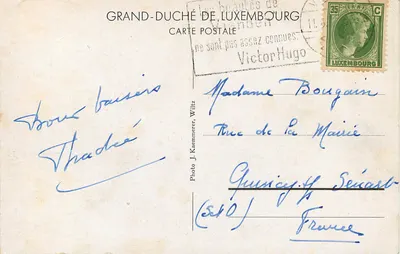 GRAND-DUCHÉ DE LUXEMBOURG
CARTE POSTALE
de
ne sont pas assez connues.
Victor Hugo
35 C
LUXEMBOURG
Doux baisers
Photo J. Kaemmerer, Wiltz
Madame Bougain
Rue de la Mairie
Quincy ss Sénart
(S et O)
France